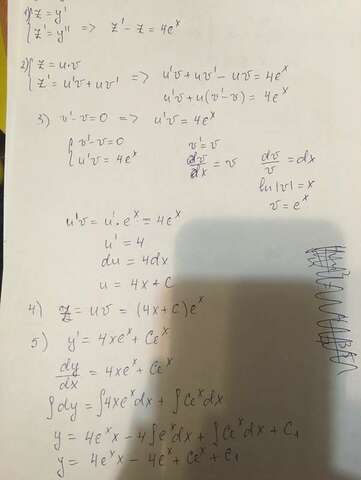 1) { z = y'
z' = y'' => z' - z = 4e^x
2) { z = u·v
z' = u'v + uv' => u'v + uv' - uv = 4e^x
u'v + u(v' - v) = 4e^x
3) v' - v = 0 => u'v = 4e^x
{ v' - v = 0
u'v = 4e^x
v' = v
dv/dx = v
dv/v = dx
ln|v| = x
v = e^x
u'v = u'·e^x = 4e^x
u' = 4
du = 4dx
u = 4x + C
4) z = uv = (4x + C)e^x
5) y' = 4xe^x + Ce^x
dy/dx = 4xe^x + Ce^x
∫dy = ∫4xe^x dx + ∫Ce^x dx
y = 4e^x x - 4∫e^x dx + ∫Ce^x dx + C₁
y = 4e^x x - 4e^x + Ce^x + C₁